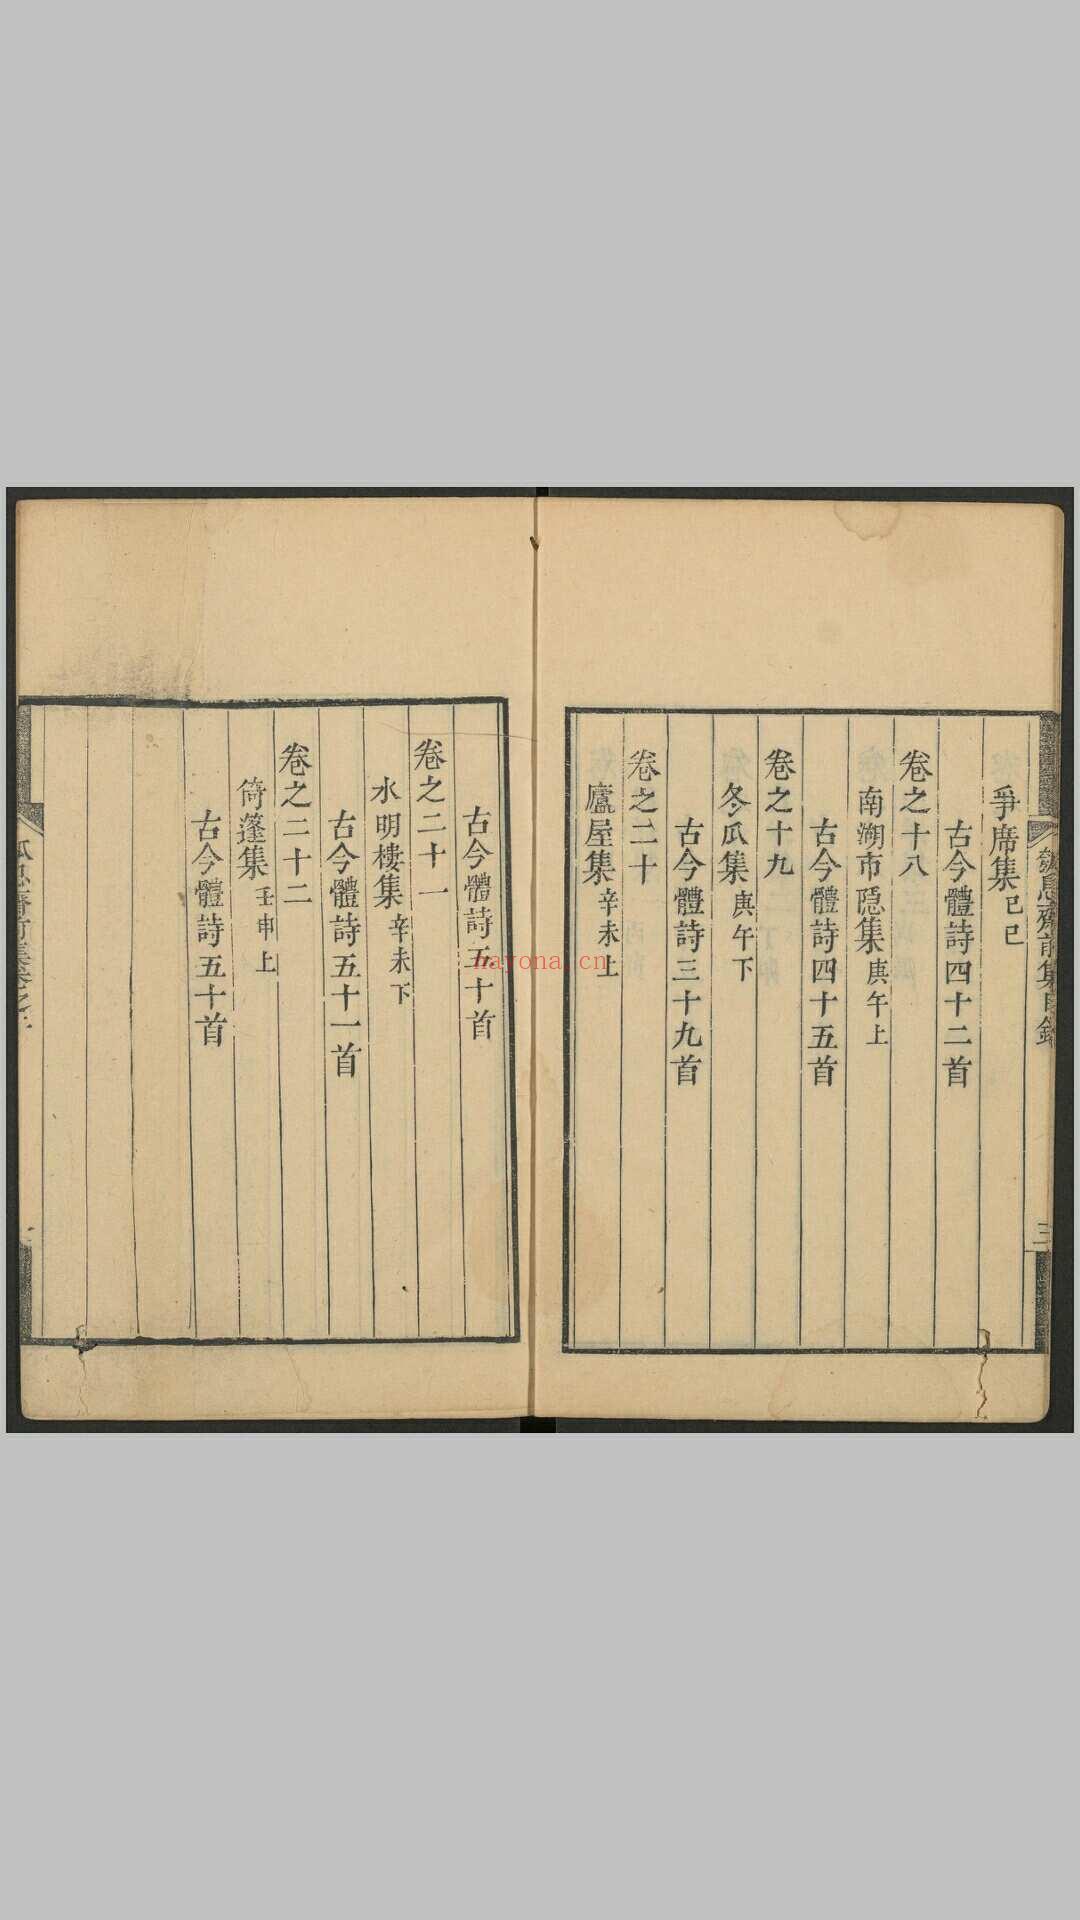 瓠息齋前集目錄
三
爭席集己巳
古今體詩四十二首
卷之十八
南湖市隱集庚午上
古今體詩四十五首
卷之十九
冬瓜集庚午下
古今體詩三十九首
卷之二十
廬屋集辛未上
古今體詩五十首
卷之二十一
水明樓集辛未下
古今體詩五十一首
卷之二十二
倚篷集壬申上
古今體詩五十首
nayona.cn